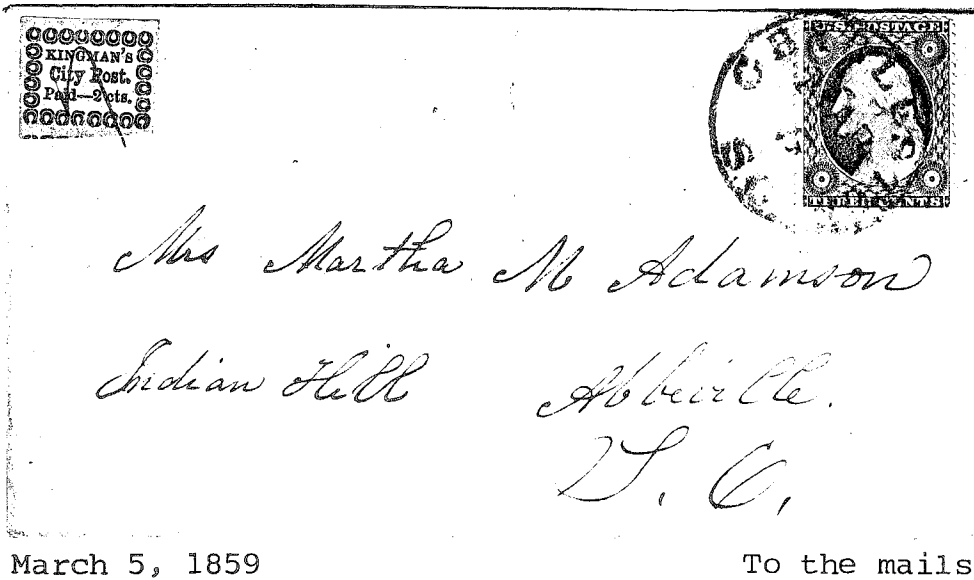 KINGMAN'S
City Post.
Paid—2 cts.
U.S. POSTAGE
THREE CENTS
Mrs Martha M Adamson
Indian Hill Abbeville.
S. C.
March 5, 1859 To the mails